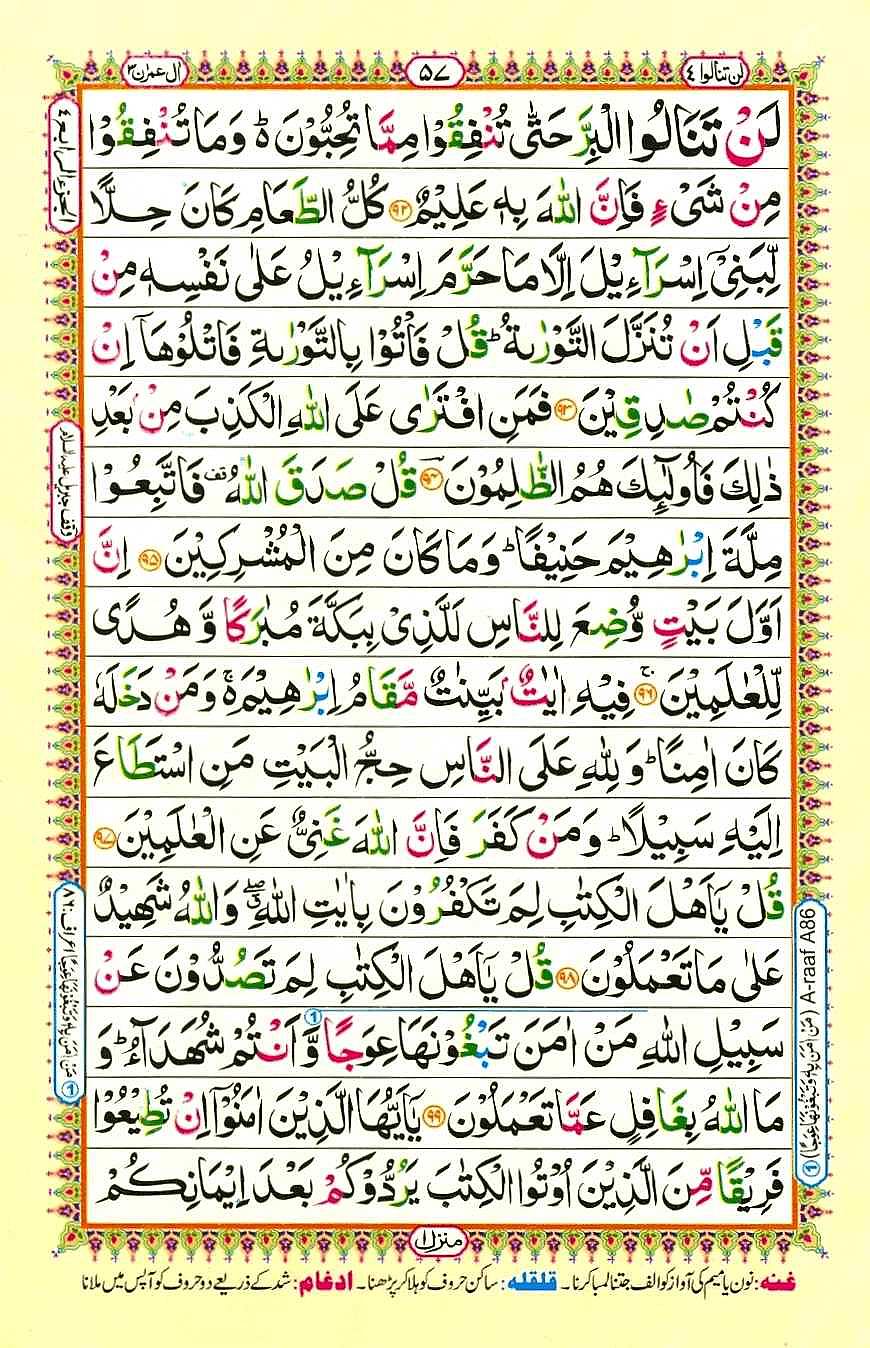 لن تنالوا ٤
٥٧
ال عمرٰن ٣
لَنْ تَنَالُوا الْبِرَّ حَتّٰى تُنْفِقُوْا مِمَّا تُحِبُّوْنَ ؕ وَمَا تُنْفِقُوْا
مِنْ شَیْءٍ فَاِنَّ اللّٰهَ بِهٖ عَلِیْمٌ ۝۹۲ كُلُّ الطَّعَامِ كَانَ حِلًّا
لِّبَنِیْۤ اِسْرَآءِیْلَ اِلَّا مَا حَرَّمَ اِسْرَآءِیْلُ عَلٰى نَفْسِهٖ مِنْ
قَبْلِ اَنْ تُنَزَّلَ التَّوْرٰىةُ ؕ قُلْ فَاْتُوْا بِالتَّوْرٰىةِ فَاتْلُوْهَاۤ اِنْ
كُنْتُمْ صٰدِقِیْنَ ۝۹۳ فَمَنِ افْتَرٰى عَلَى اللّٰهِ الْكَذِبَ مِنْۢ بَعْدِ
ذٰلِكَ فَاُولٰٓىِٕكَ هُمُ الظّٰلِمُوْنَ ۝۹۴ قُلْ صَدَقَ اللّٰهُ ۫ فَاتَّبِعُوْا
مِلَّةَ اِبْرٰهِیْمَ حَنِیْفًا ؕ وَمَا كَانَ مِنَ الْمُشْرِكِیْنَ ۝۹۵ اِنَّ
اَوَّلَ بَیْتٍ وُّضِعَ لِلنَّاسِ لَلَّذِیْ بِبَكَّةَ مُبٰرَكًا وَّهُدًى
لِّلْعٰلَمِیْنَ ۝۹۶ۚ فِیْهِ اٰیٰتٌۢ بَیِّنٰتٌ مَّقَامُ اِبْرٰهِیْمَ ۚ۬ وَمَنْ دَخَلَهٗ
كَانَ اٰمِنًا ؕ وَلِلّٰهِ عَلَى النَّاسِ حِجُّ الْبَیْتِ مَنِ اسْتَطَاعَ
اِلَیْهِ سَبِیْلًا ؕ وَمَنْ كَفَرَ فَاِنَّ اللّٰهَ غَنِیٌّ عَنِ الْعٰلَمِیْنَ ۝۹۷
قُلْ یٰۤاَهْلَ الْكِتٰبِ لِمَ تَكْفُرُوْنَ بِاٰیٰتِ اللّٰهِ ۖۗ وَاللّٰهُ شَهِیْدٌ
عَلٰى مَا تَعْمَلُوْنَ ۝۹۸ قُلْ یٰۤاَهْلَ الْكِتٰبِ لِمَ تَصُدُّوْنَ عَنْ
سَبِیْلِ اللّٰهِ مَنْ اٰمَنَ تَبْغُوْنَهَا عِوَجًا وَّاَنْتُمْ شُهَدَآءُ ؕ وَ
مَا اللّٰهُ بِغَافِلٍ عَمَّا تَعْمَلُوْنَ ۝۹۹ یٰۤاَیُّهَا الَّذِیْنَ اٰمَنُوْۤا اِنْ تُطِیْعُوْا
فَرِیْقًا مِّنَ الَّذِیْنَ اُوْتُوا الْكِتٰبَ یَرُدُّوْكُمْ بَعْدَ اِیْمَانِكُمْ
منزل ١
غنہ: نون یا میم کی آواز کو الف جتنا لمبا کرنا۔ قلقلہ: ساکن حروف کو ہلا کر پڑھنا۔ ادغام: شد کے ذریعے دو حروف کو آپس میں ملانا
الجزء الرابع ٤
وقف جبریل علیہ السلام
① مَنْ اٰمَنَ بِهٖ وَتَبْغُوْنَهَا عِوَجًا اعراف: ۸۶
① (مَنْ اٰمَنَ بِهٖ وَتَبْغُوْنَهَا عِوَجًا) A-raaf A86